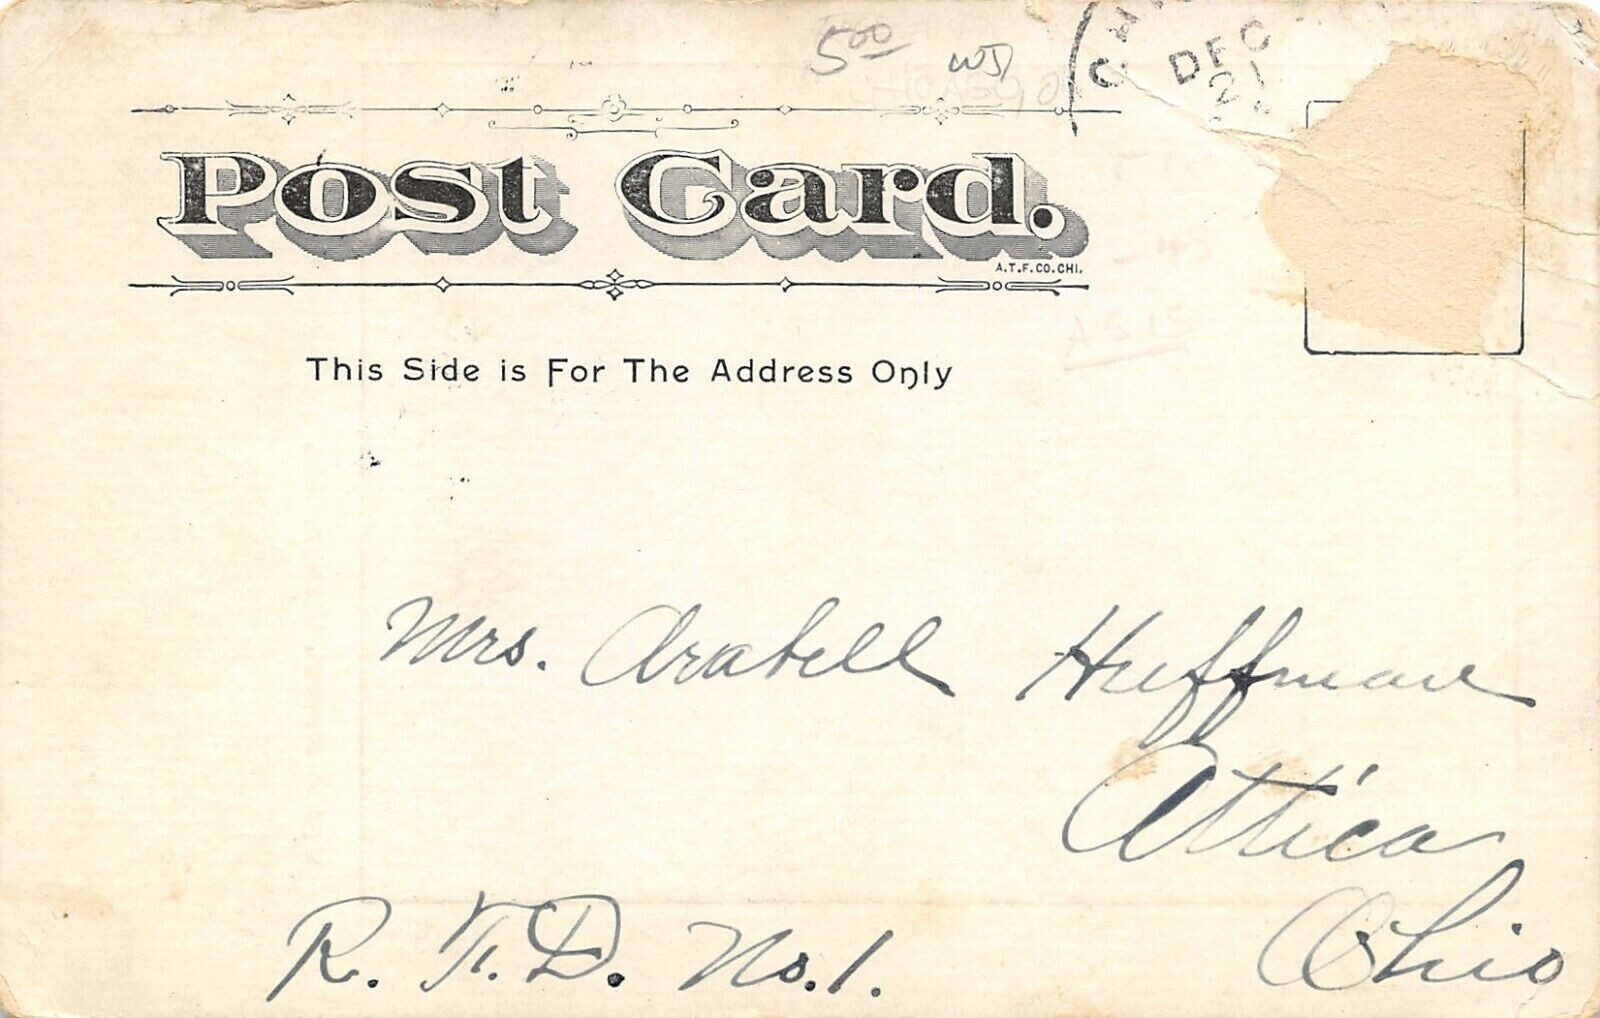 5.00 WD
CH
DEC
2
Post Card.
A.T.F.CO.CHI.
This Side is For The Address Only
Mrs. Arabell Huffman
Attica
Ohio
R.F.D. No.1.